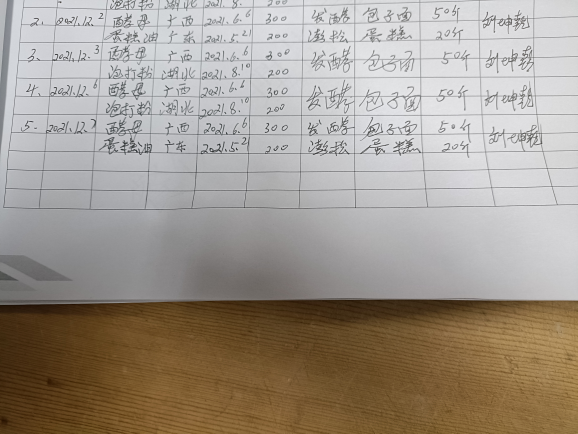 泡打粉 湖北 2021.8. 200
2. 2021.12.2 酵母 广西 2021.6.6 300 发酵 包子面 50斤 刘坤乾
蛋糕油 广东 2021.5.21 200 澎松 蛋糕 20斤
3. 2021.12.3 酵母 广西 2021.6.6 300 发酵 包子面 50斤 刘坤乾
泡打粉 湖北 2021.8.10 200
4. 2021.12.6 酵母 广西 2021.6.6 300 发酵 包子面 50斤 刘坤乾
泡打粉 湖北 2021.8.10 200
5. 2021.12.7 酵母 广西 2021.6.6 300 发酵 包子面 50斤 刘坤乾
蛋糕油 广东 2021.5.21 200 澎松 蛋糕 20斤